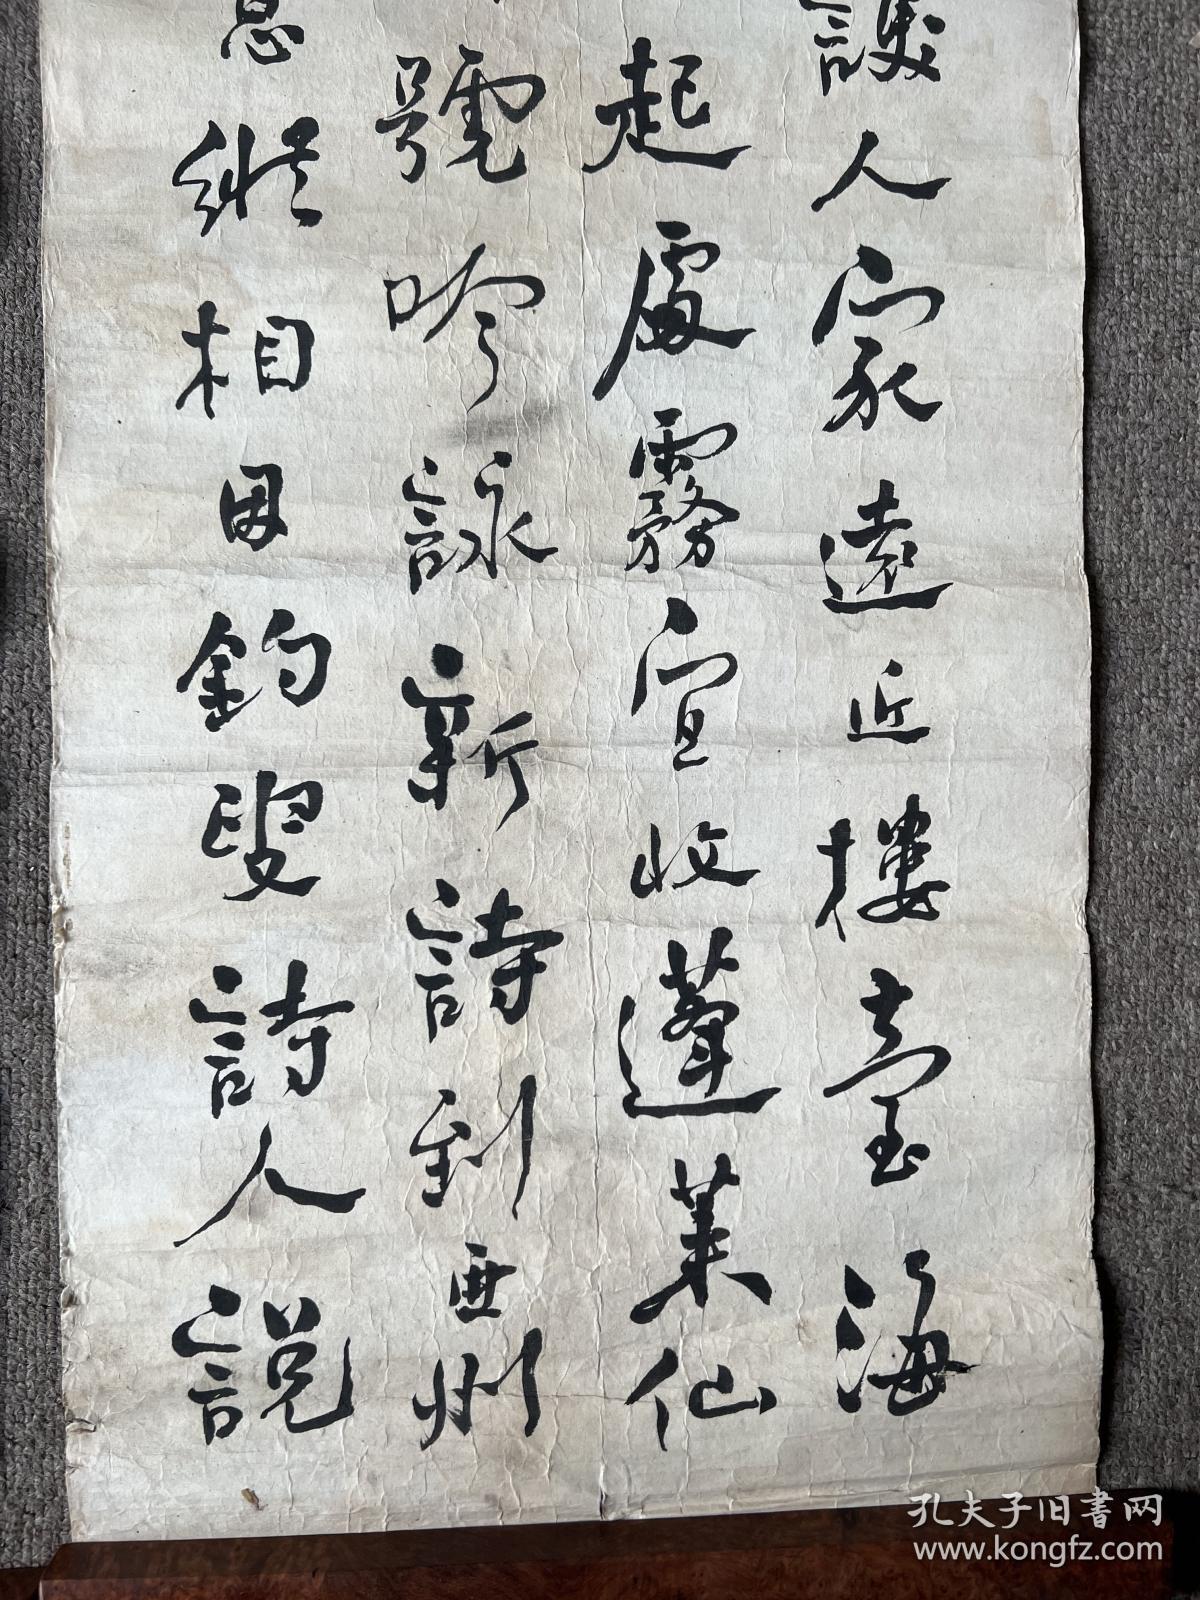 護人家遠近樓臺海
起處霧宜收蓬莱仙
號吟詠新詩到亜州
息縱相因釣叟詩人説
孔夫子旧書网
www.kongfz.com